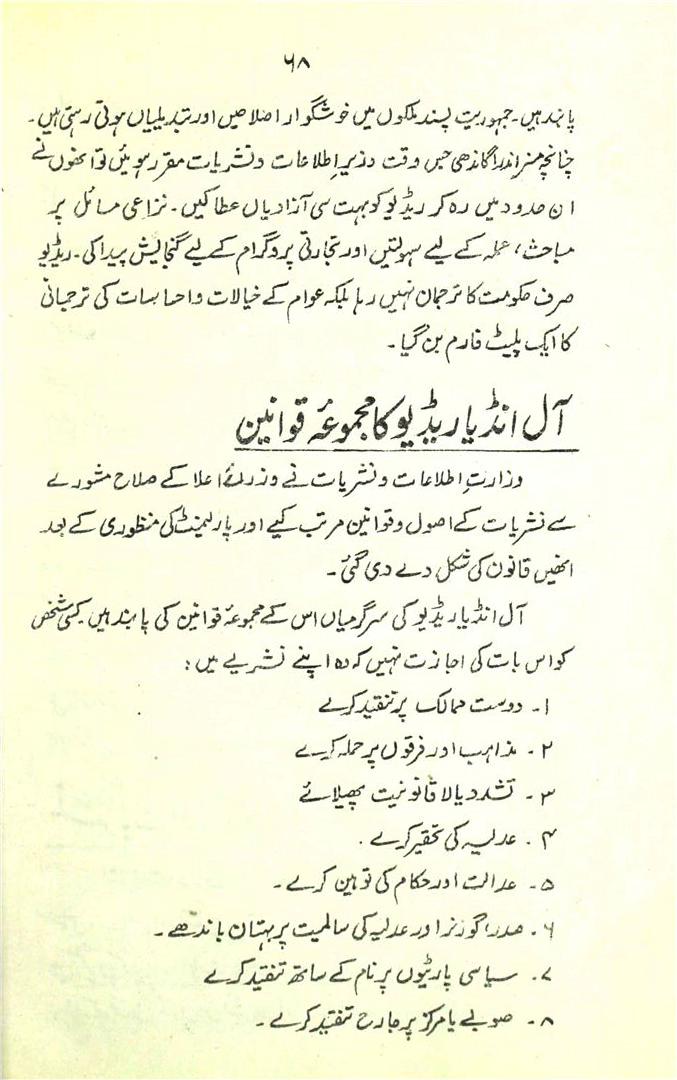 ۶۸
پابند ہیں۔ جمہوریت پسند ملکوں میں خوشگوار اصلاحیں اور تبدیلیاں ہوتی رہتی ہیں۔
چنانچہ مسز اندرا گاندھی جس وقت وزیرِ اطلاعات و نشریات مقرر ہوئیں تو انھوں نے
ان حدود میں رہ کر ریڈیو کو بہت سی آزادیاں عطا کیں۔ نزاعی مسائل پر
مباحث، عملہ کے لیے سہولتیں اور تجارتی پروگرام کے لیے گنجایش پیدا کی۔ ریڈیو
صرف حکومت کا ترجمان نہیں رہا بلکہ عوام کے خیالات و احساسات کی ترجمانی
کا ایک پلیٹ فارم بن گیا۔
آل انڈیا ریڈیو کا مجموعۂ قوانین
وزارتِ اطلاعات و نشریات نے وزرائے اعلا کے صلاح مشورے
سے نشریات کے اصول و قوانین مرتب کیے اور پارلیمنٹ کی منظوری کے بعد
انھیں قانون کی شکل دے دی گئی۔
آل انڈیا ریڈیو کی سرگرمیاں اس کے مجموعۂ قوانین کی پابند ہیں۔ کسی شخص
کو اس بات کی اجازت نہیں کہ وہ اپنے نشریے میں:
۱۔ دوست ممالک پر تنقید کرے
۲۔ مذاہب اور فرقوں پر حملہ کرے
۳۔ تشدد یا لا قانونیت پھیلائے
۴۔ عدلیہ کی تحقیر کرے۔
۵۔ عدالت اور حکام کی توہین کرے۔
۶۔ صدر، گورنر اور عدلیہ کی سالمیت پر بہتان باندھے۔
۷۔ سیاسی پارٹیوں پر نام کے ساتھ تنقید کرے
۸۔ صوبے یا مرکز پر جارح تنقید کرے۔